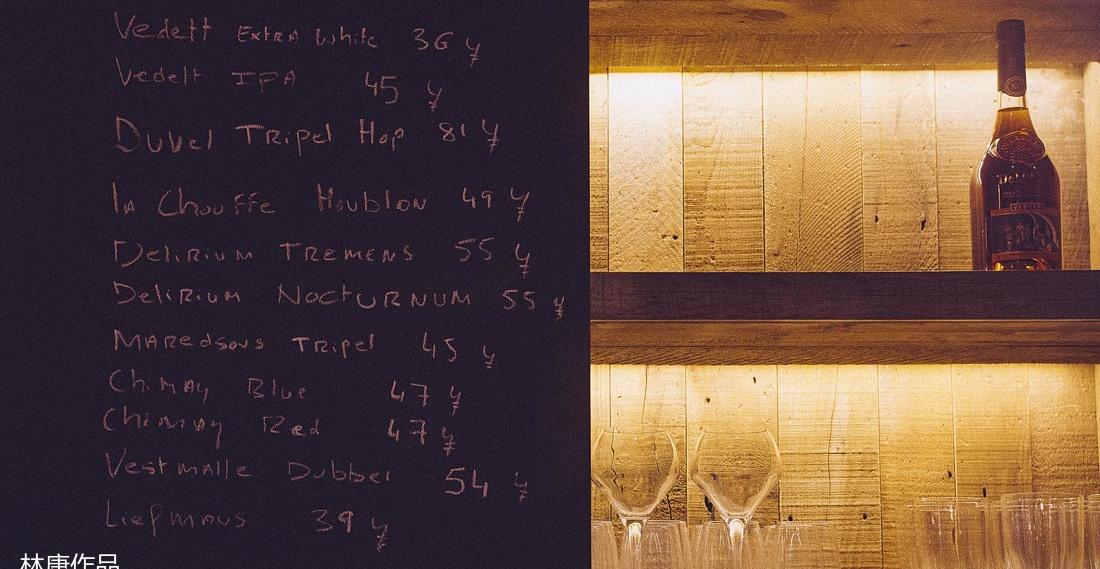 Vedett Extra White 36 ¥
Vedett IPA 45 ¥
Duvel Tripel Hop 81 ¥
la Chouffe Houblon 49 ¥
Delirium TREMENS 55 ¥
Delirium NOCTURNUM 55 ¥
MARedsous Tripel 45 ¥
Chimay Blue 47 ¥
Chimay Red 47 ¥
Vestmalle Dubbel 54 ¥
Liefmans 39 ¥
林唐作品